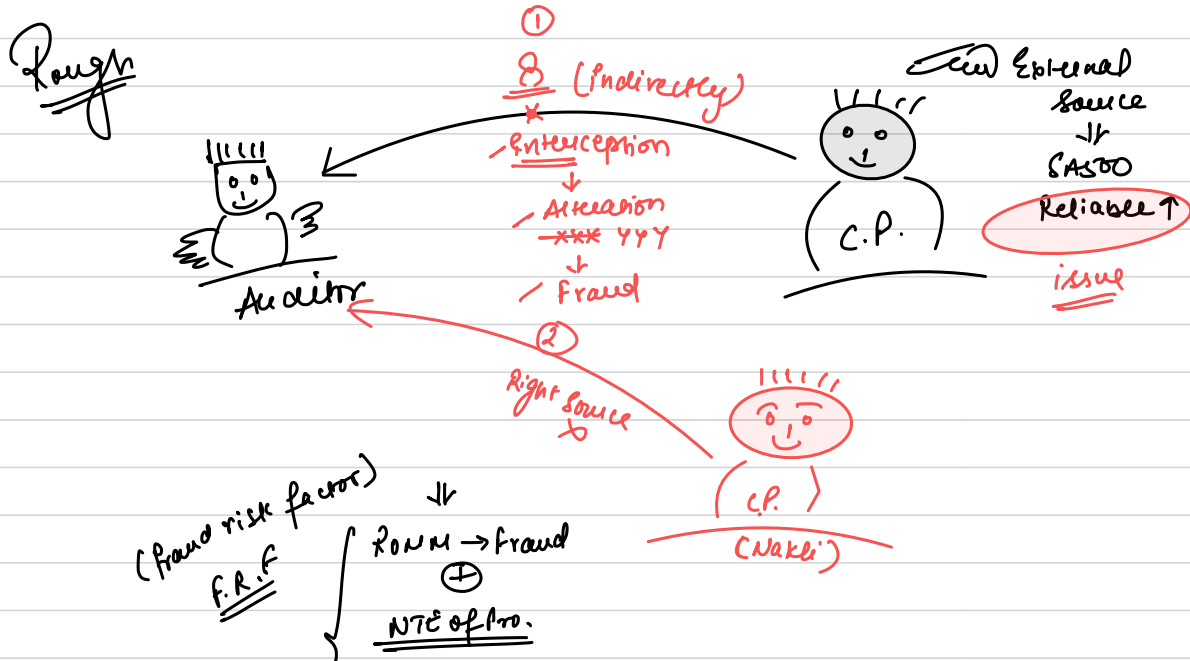 Rough
①
(indirectly)
Enterception
↓
Alteration
xxx YYY
↓
Fraud
External
Source
⇓
SA500
Reliable ↑
issue
C.P.
Auditor
②
Right Source
C.P.
(Nakli)
(fraud risk factor)
F.R.F
⇓
ROMM → Fraud
+
NTE of Pro.